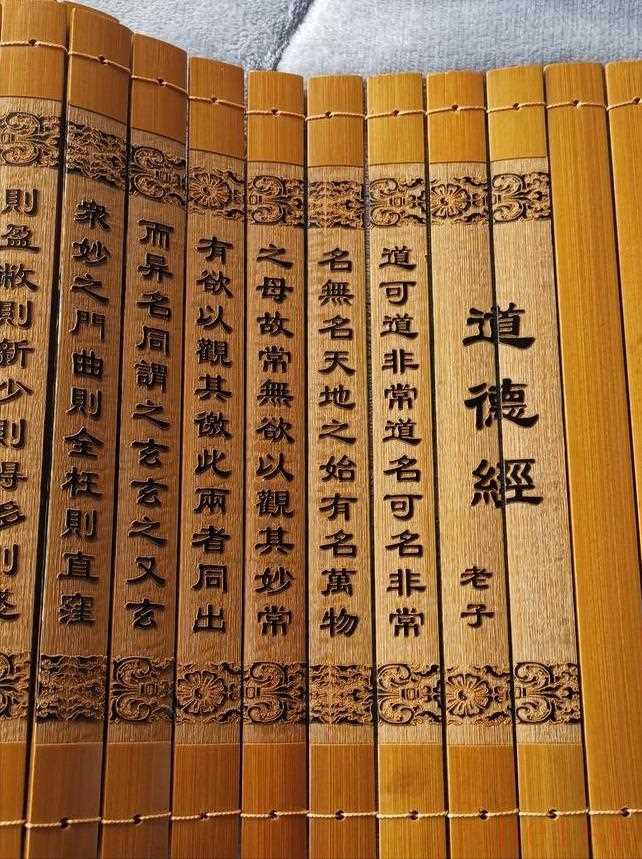 道德經
老子
道可道非常道名可名非常
名無名天地之始有名萬物
之母故常無欲以觀其妙常
有欲以觀其徼此兩者同出
而异名同謂之玄玄之又玄
衆妙之門曲則全枉則直窪
則盈敝則新少則得多則